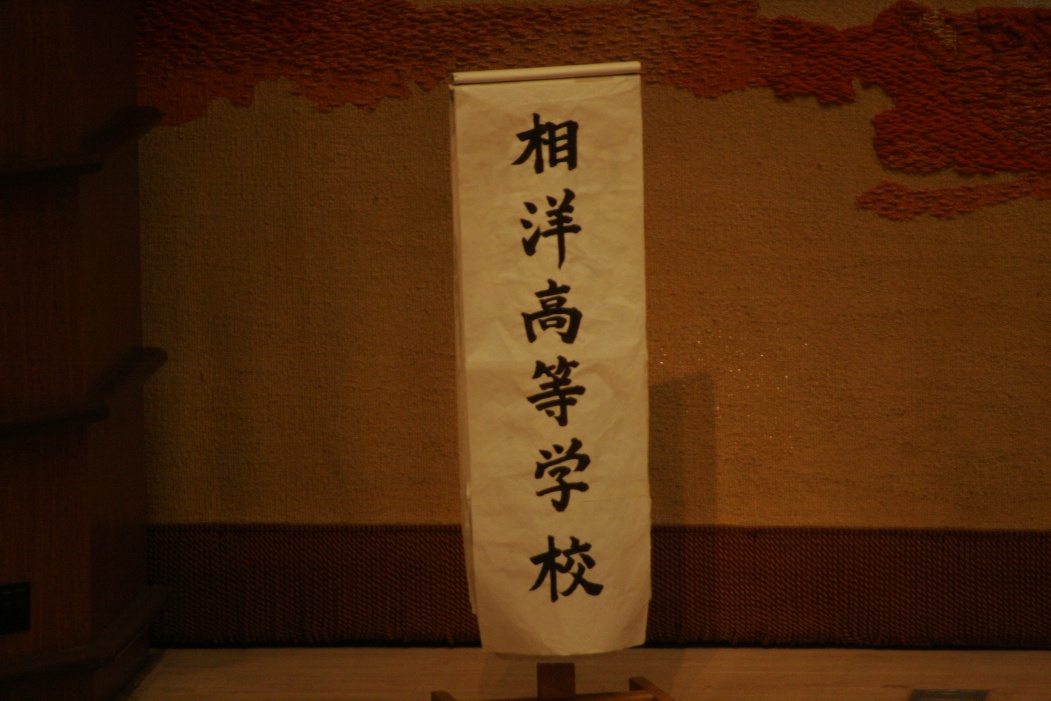 相洋高等学校